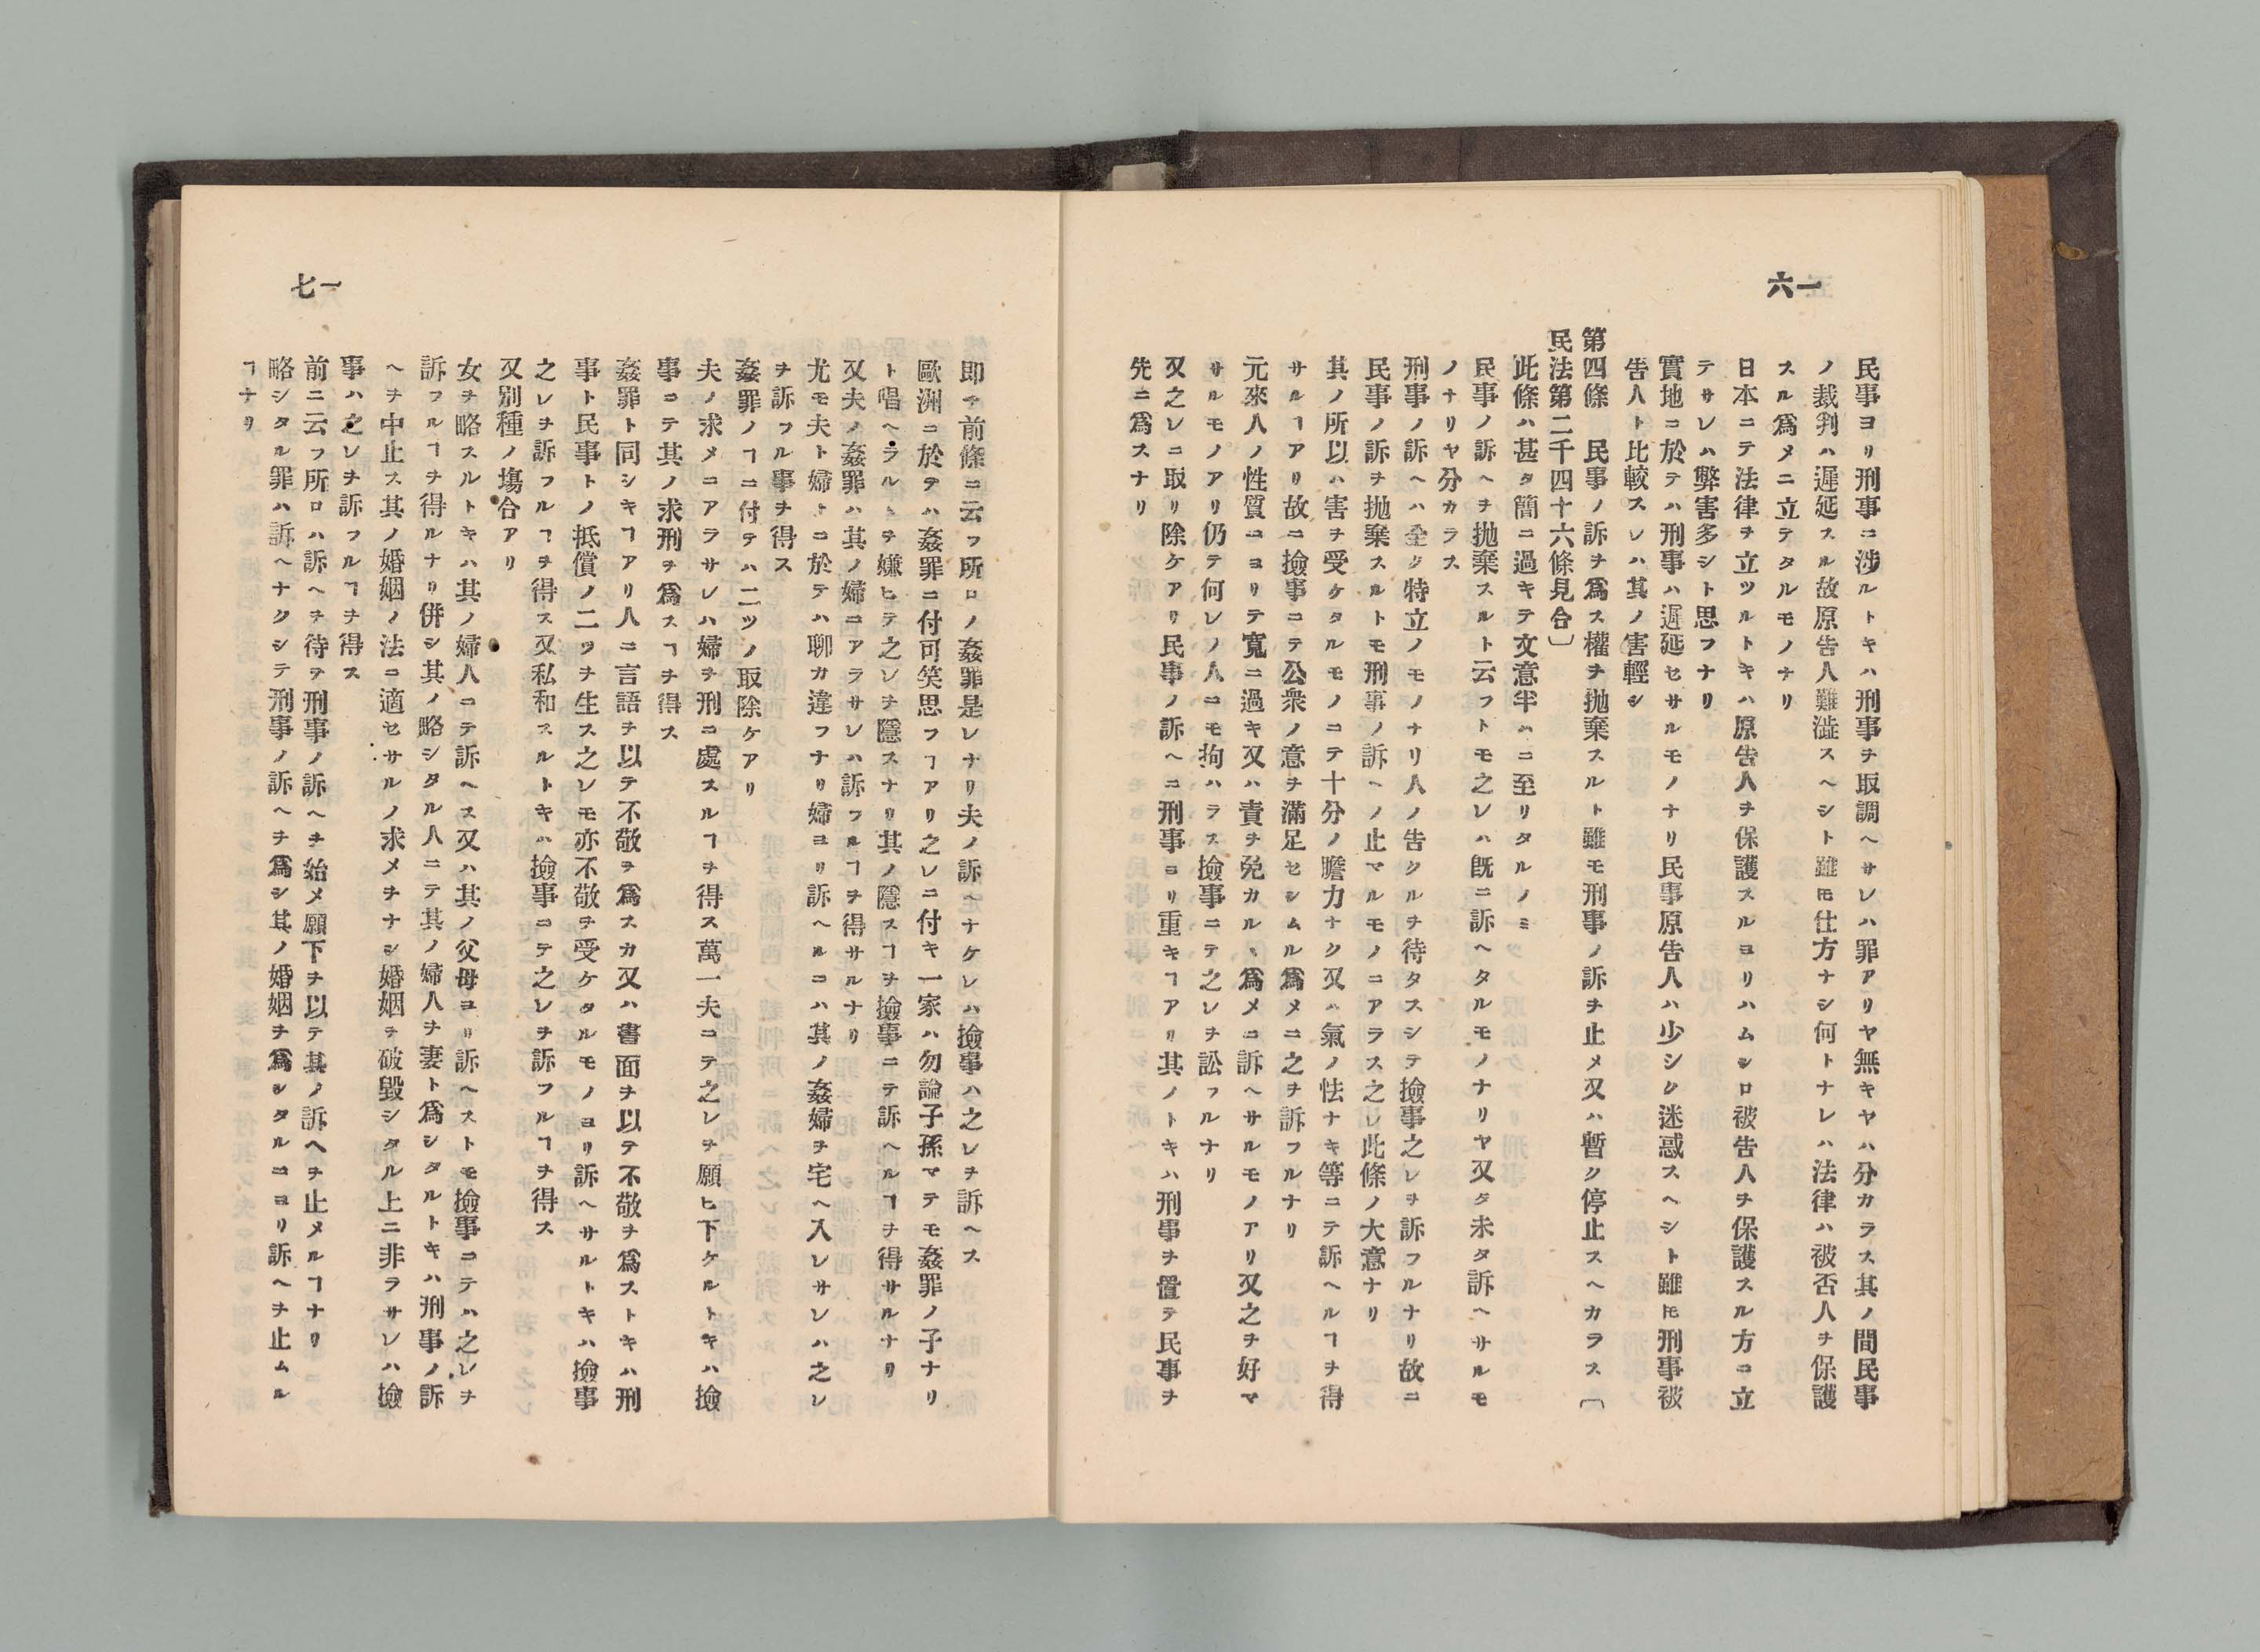 一六
民事ヨリ刑事ニ涉ルトキハ刑事ヲ取調ヘサレハ罪アリヤ無キヤハ分カラス其ノ間民事
ノ裁判ハ遲延スル故原告人難澁スヘシト雖モ仕方ナシ何トナレハ法律ハ被吿人ヲ保護
スル爲メニ立テタルモノナリ
日本ニテ法律ヲ立ツルトキハ原告人ヲ保護スルヨリハムシロ被告人ヲ保護スル方ニ立
テサレハ弊害多シト思フナリ
實地ニ於テハ刑事ハ遲延セサルモノナリ民事原告人ハ少シク迷惑スヘシト雖𪜈刑事被
告人ト比較スレハ其ノ害輕シ
第四條　民事ノ訴ヲ爲ス權ヲ抛棄スルト雖モ刑事ノ訴ヲ止メ又ハ暫ク停止スヘカラス〔
民法第二千四十六條見合〕
此條ハ甚タ簡ニ過キテ文意半ハニ至リタルノミ
民事ノ訴ヘヲ抛棄スルト云フトモ之レハ既ニ訴ヘタルモノナリヤ又タ未タ訴ヘサルモ
ノナリヤ分カラス
刑事ノ訴ヘハ全ク特立ノモノナリ人ノ告クルヲ待タスシテ撿事之レヲ訴フルナリ故ニ
民事ノ訴ヲ抛棄スルトモ刑事ノ訴ヘノ止マルモノニアラス之レ此條ノ大意ナリ
其ノ所以ハ害ヲ受ケタルモノニテ十分ノ膽力ナク又ハ氣ノ怯ナキ等ニテ訴ヘルヿヲ得
サルヿアリ故ニ撿事ニテ公衆ノ意ヲ滿足セシムル爲メニ之ヲ訴フルナリ
元來人ノ性質ニヨリテ寬ニ過キ又ハ責ヲ免カルヽ爲メニ訴ヘサルモノアリ又之ヲ好マ
サルモノアリ仍テ何レノ人ニモ拘ハラス撿事ニテ之レヲ訟フルナリ
又之レニ取リ除ケアリ民事ノ訴ヘニ刑事ヨリ重キヿアリ其ノトキハ刑事ヲ置テ民事ヲ
先ニ爲スナリ
一七
即チ前條ニ云フ所ロノ姦罪是レナリ夫ノ訴ヘナケレハ撿事ハ之レヲ訴ヘス
歐洲ニ於テハ姦罪ニ付可笑思フヿアリ之レニ付キ一家ハ勿論子孫マテモ姦罪ノ子ナリ
ト唱ヘラルヽヲ嫌ヒテ之レヲ隱スナリ其ノ隱スヿヲ撿事ニテ訴ヘルヿヲ得サルナリ
又夫ノ姦罪ハ其ノ婦ニアラサレハ訴フルヿヲ得サルナリ
尤モ夫ト婦トニ於テハ聊カ違フナリ婦ヨリ訴ヘルニハ其ノ姦婦ヲ宅ヘ入レサレハ之レ
ヲ訴フル事ヲ得ス
姦罪ノヿニ付テハ二ツノ取除ケアリ
夫ノ求メニアラサレハ婦ヲ刑ニ處スルヿヲ得ス萬一夫ニテ之レヲ願ヒ下ケルトキハ撿
事ニテ其ノ求刑ヲ爲スヿヲ得ス
姦罪ト同シキヿアリ人ニ言語ヲ以テ不敬ヲ爲スカ又ハ書面ヲ以テ不敬ヲ爲ストキハ刑
事ト民事トノ抵償ノ二ツヲ生ス之レモ亦不敬ヲ受ケタルモノヨリ訴ヘサルトキハ撿事
之レヲ訴フルヿヲ得ス又私和スルトキハ撿事ニテ之レヲ訴フルヿヲ得ス
又別種ノ塲合アリ
女ヲ略スルトキハ其ノ婦人ニテ訴ヘス又ハ其ノ父母ヨリ訴ヘストモ撿事ニテハ之レヲ
訴フルヿヲ得ルナリ併シ其ノ略シタル人ニテ其ノ婦人ヲ妻ト爲シタルトキハ刑事ノ訴
ヘヲ中止ス其ノ婚姻ノ法ニ適セサルノ求メヲナシ婚姻ヲ破毀シタル上ニ非ラサレハ撿
事ハ之レヲ訴フルヿヲ得ス
前ニ云フ所ロハ訴ヘヲ待テ刑事ノ訴ヘヲ始メ願下ヲ以テ其ノ訴ヘヲ止メルヿナリ
略シタル罪ハ訴ヘナクシテ刑事ノ訴ヘヲ爲シ其ノ婚姻ヲ爲シタルニヨリ訴ヘヲ止ムル
ヿナリ